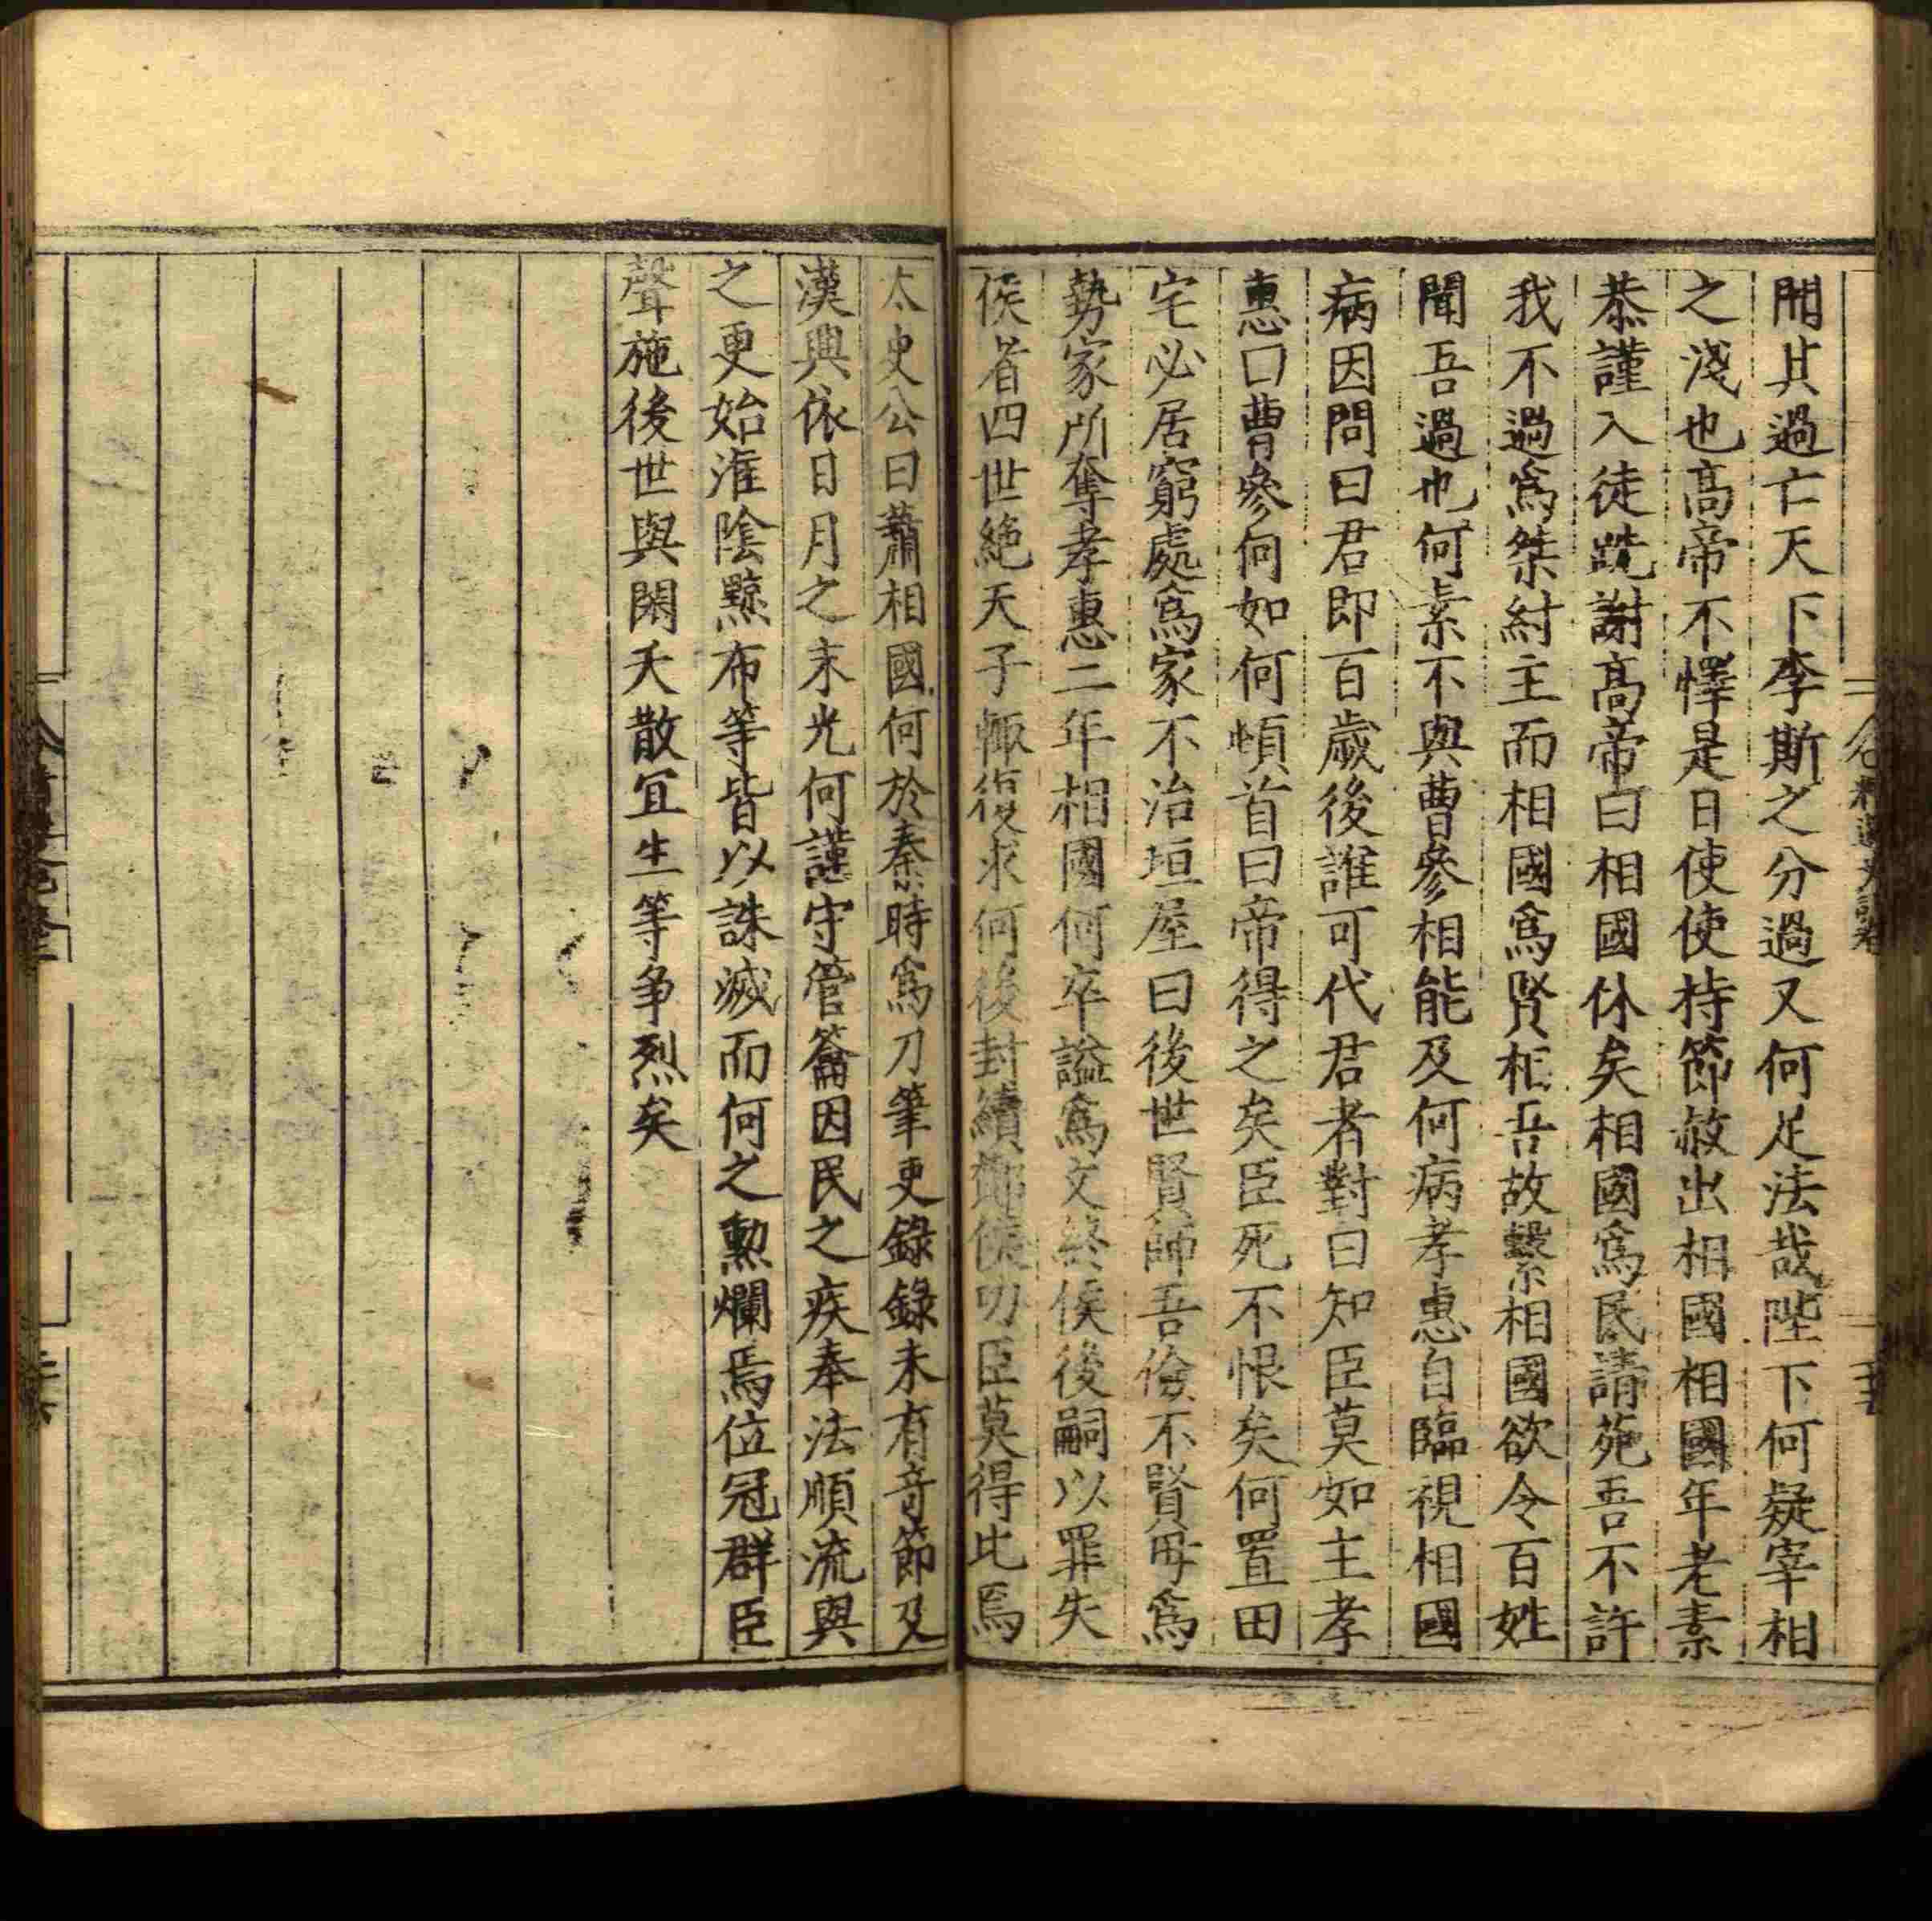 聞其過亡天下李斯之分過又何足法哉陛下何疑宰相
之淺也高帝不懌是日使使持節赦出相國相國年老素
恭謹入徒跣謝高帝曰相國休矣相國爲民請苑吾不許
我不過爲桀紂主而相國爲賢相吾故繫相國欲令百姓
聞吾過也何素不與曹參相能及何病孝惠自臨視相國
病因問曰君即百歲後誰可代君者對曰知臣莫如主孝
惠曰曹參何如何頓首曰帝得之矣臣死不恨矣何置田
宅必居窮處爲家不治垣屋曰後世賢師吾儉不賢毋爲
勢家所奪孝惠二年相國何卒謚爲文終侯後嗣以罪失
侯者四世絶天子輒復求何後封續酇侯功臣莫得比焉
太史公曰蕭相國何於秦時爲刀筆吏錄錄未有奇節及
漢興依日月之末光何謹守管籥因民之疾奉法順流與
之更始淮陰黥布等皆以誅滅而何之勲爛焉位冠群臣
聲施後世與閎夭散宜生等争烈矣